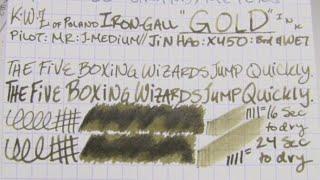 K.W.Z OF POLAND IRON-GALL "GOLD" INK
PILOT: MR: J-MEDIUM// JINHAO: X450: WET
THE FIVE BOXING WIZARDS JUMP QUICKLY.
THE FIVE BOXING WIZARDS JUMP QUICKLY.
= 16 SEC
to dry
= 24 SEC
to dry